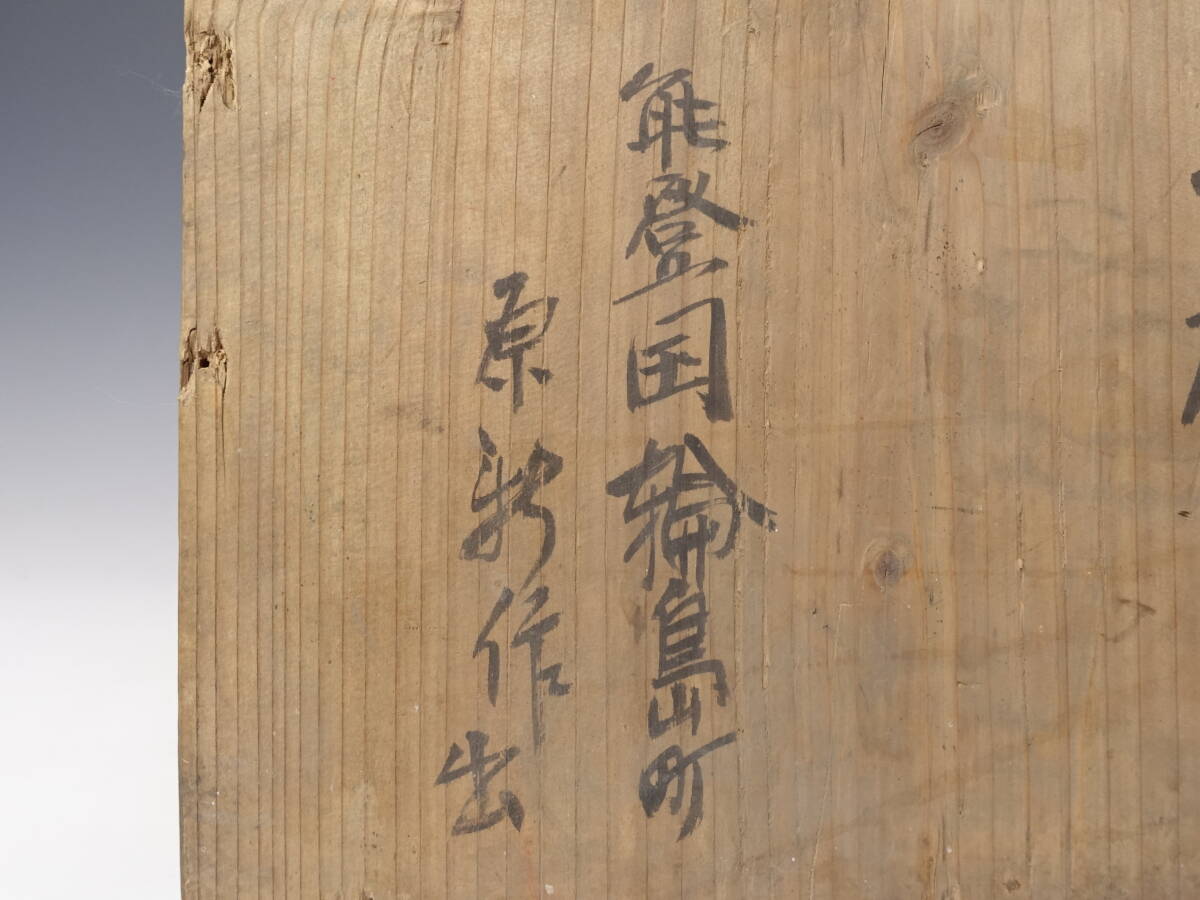 能登国輪島町
原新作出